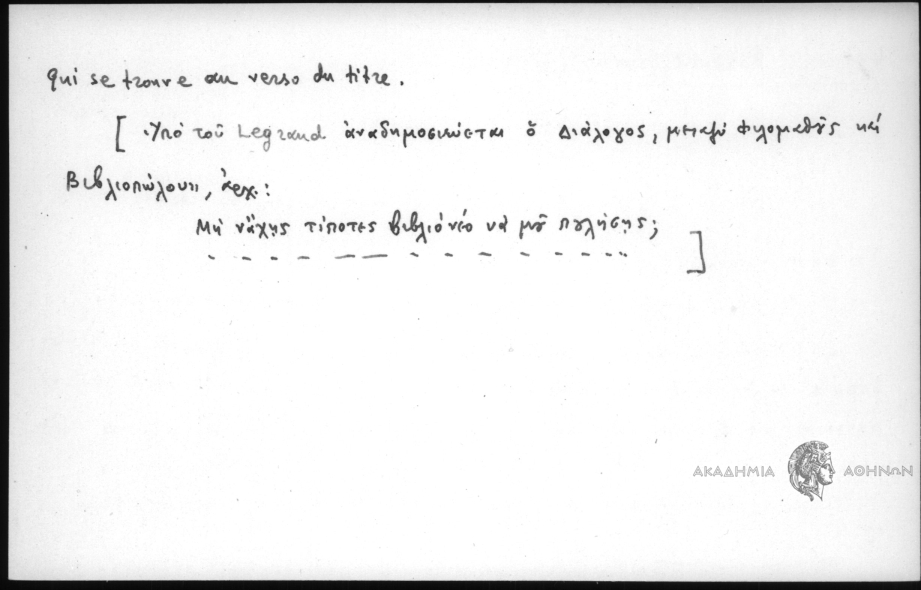 qui se trouve au verso du titre.
[Ὑπὸ τοῦ Legrand ἀναδημοσιεύεται ὁ Διάλογος, μεταξὺ Φιλομαθοῦς καὶ
Βιβλιοπώλου", ἀρχ.:
Μὴ νἄχης τίποτες βιβλιὸ νέο νὰ μοῦ πουλήσης;
- - - - — - - - - - - - - ]
ΑΚΑΔΗΜΙΑ ΑΘΗΝΩΝ